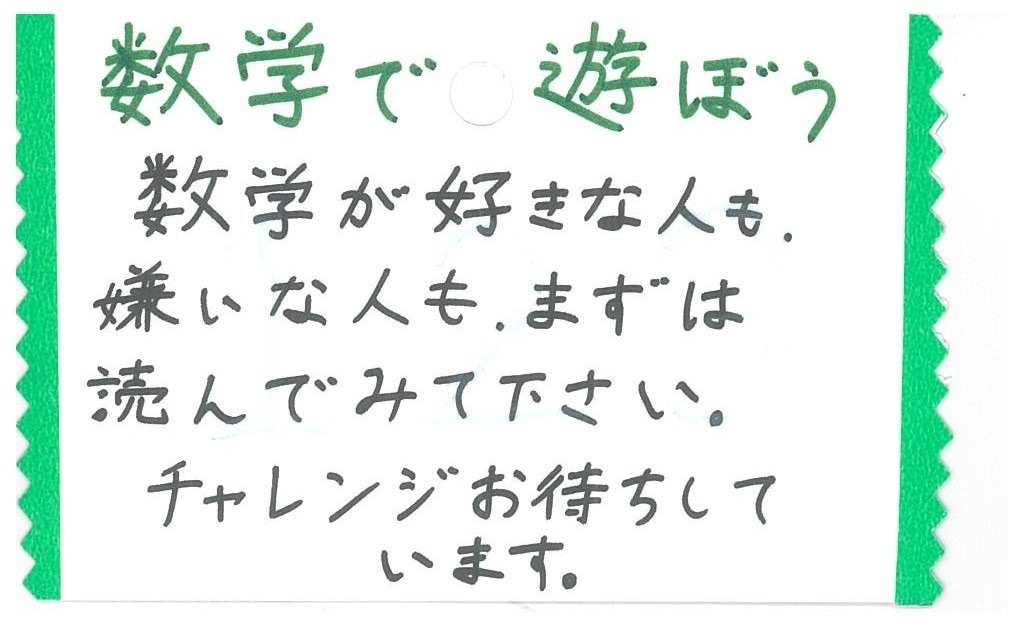 数学で遊ぼう
数学が好きな人も、
嫌いな人も、まずは
読んでみて下さい。
チャレンジお待ちして
います。